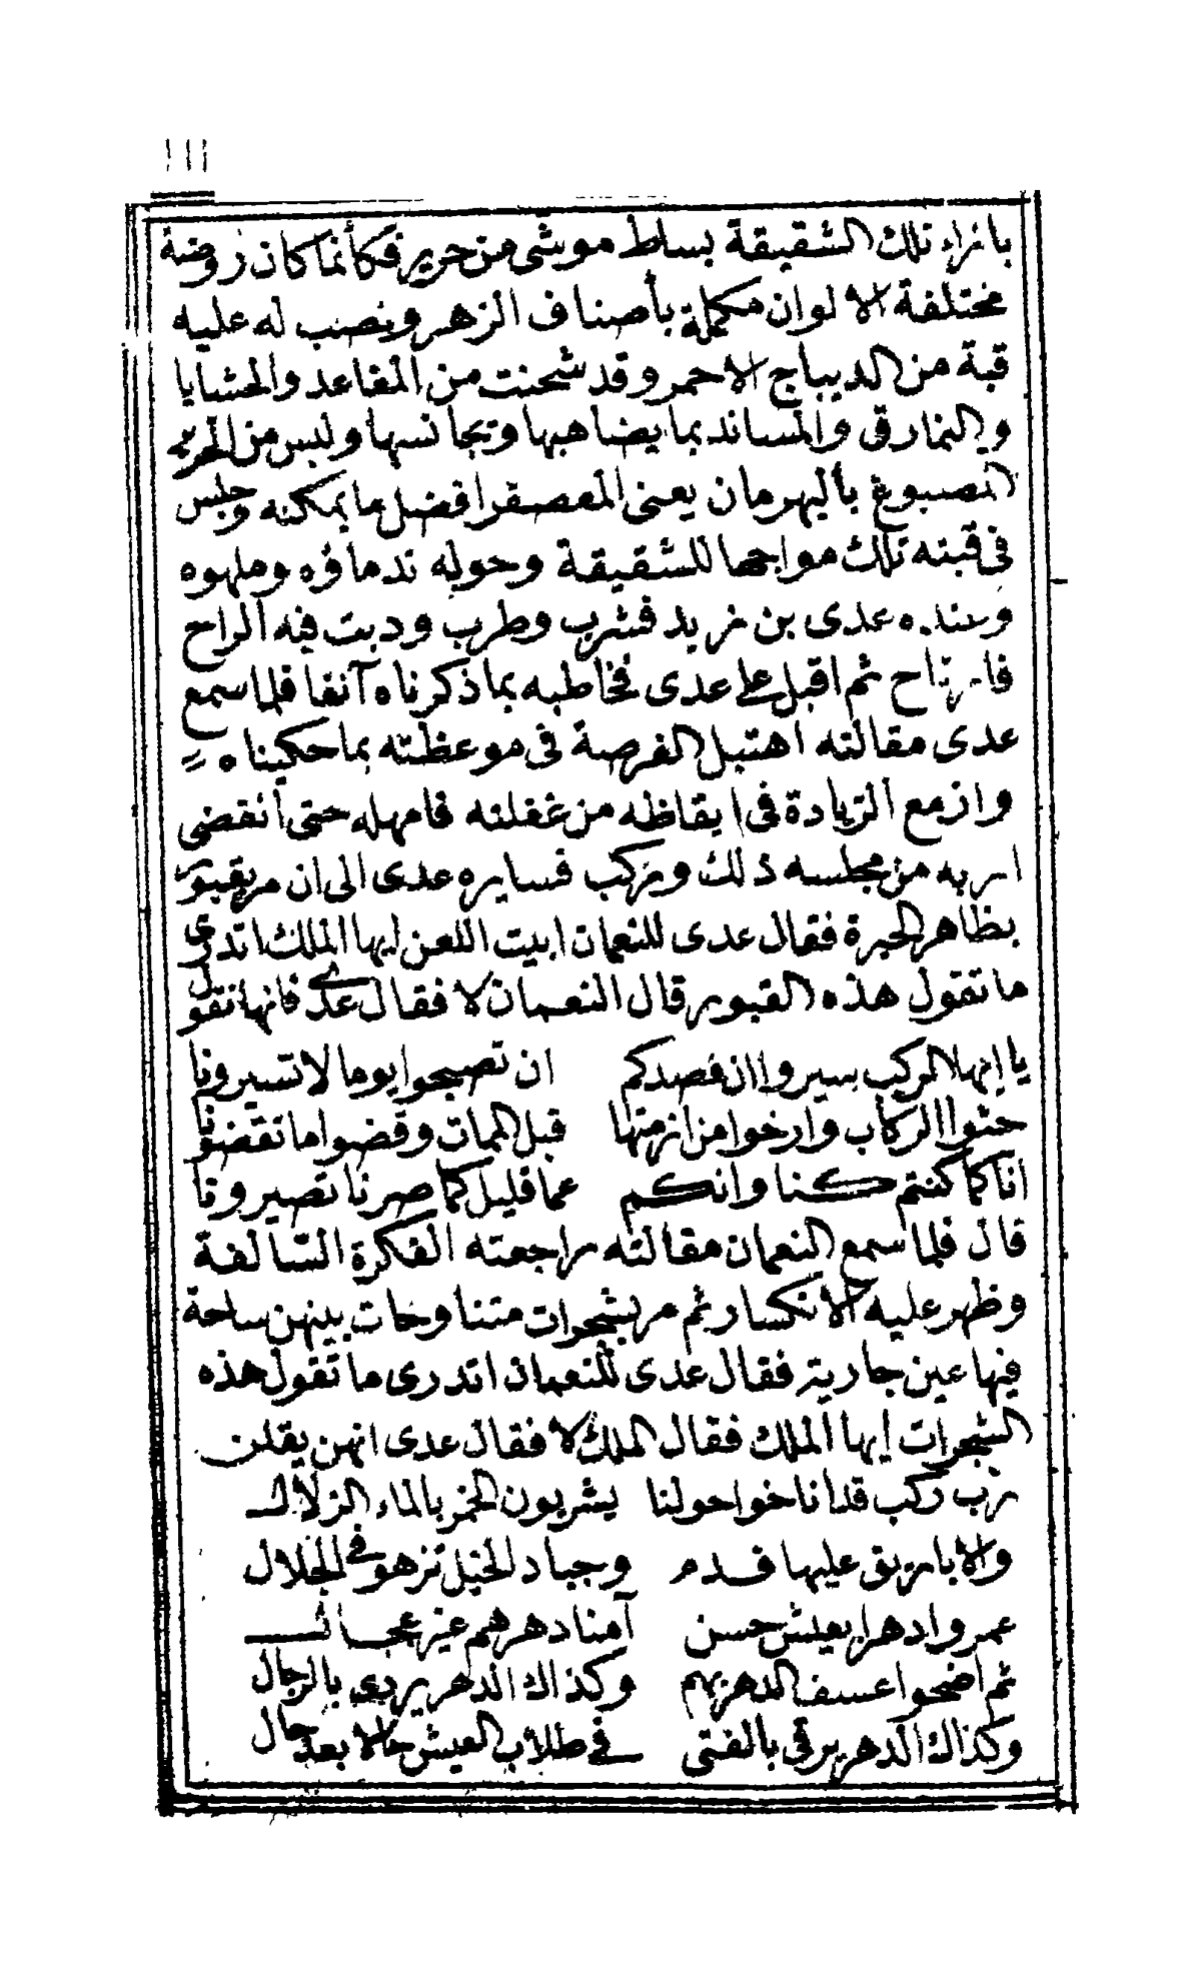 ١١١
بازاء تلك الشقيقة بساط موشى من حرير فكأنما كان روضة
مختلفة الالوان مكملة بأصناف الزهر ونصب له عليه
قبة من الديباج الاحمر وقد شحنت من المقاعد والحشايا
والنمارق والمساند بما يضاهيها وتجانسها ولبس من الحرير
المصبوغ بالبهرمان يعنى المعصفر افضل ما يمكنه وجلس
فى قبته تلك مواجها للشقيقة وحوله ندماؤه وملهوه
وعنده عدى بن زيد فشرب وطرب ودبت فيه الراح
فارتاح ثم اقبل على عدى فخاطبه بما ذكرناه آنفا فلما سمع
عدى مقالته اهتبل الفرصة فى موعظته بما حكيناه
وازمع الزيادة فى ايقاظه من غفلته فامهله حتى انقضى
اربه من مجلسه ذلك وركب فسايره عدى الى ان مر بقبور
بظاهر الحيرة فقال عدى للنعمان ابيت اللعن ايها الملك اتدرى
ما تقول هذه القبور قال النعمان لا فقال عدى فانها تقول
يا ايها الركب سيروا ان قصدكم ان تصبحوا يوما لا تسيرونا
حثوا الركاب وارخوا من ازمتها قبل الممات وقضوا ما تقضونا
انا كما كنتم كنا وانكم عما قليل كما صرنا تصيرونا
قال فلما سمع النعمان مقالته راجعته الفكرة السالفة
وظهر عليه الانكسار ثم مر بشجرات متناوحات بينهن ساحة
فيها عين جارية فقال عدى للنعمان اتدرى ما تقول هذه
الشجرات ايها الملك فقال الملك لا فقال عدى انهن يقلن
رب ركب قد اناخوا حولنا يشربون الخمر بالماء الزلال
والاباريق عليها فدم وجياد الخيل تزهو فى الجلال
عمروا دهرا بعيش حسن آمنا دهرهم غير عجال
ثم اضحوا عسف الدهر بهم وكذاك الدهر يردى بالرجال
وكذاك الدهر يرقى بالفتى فى طلاب العيش حالا بعد حال